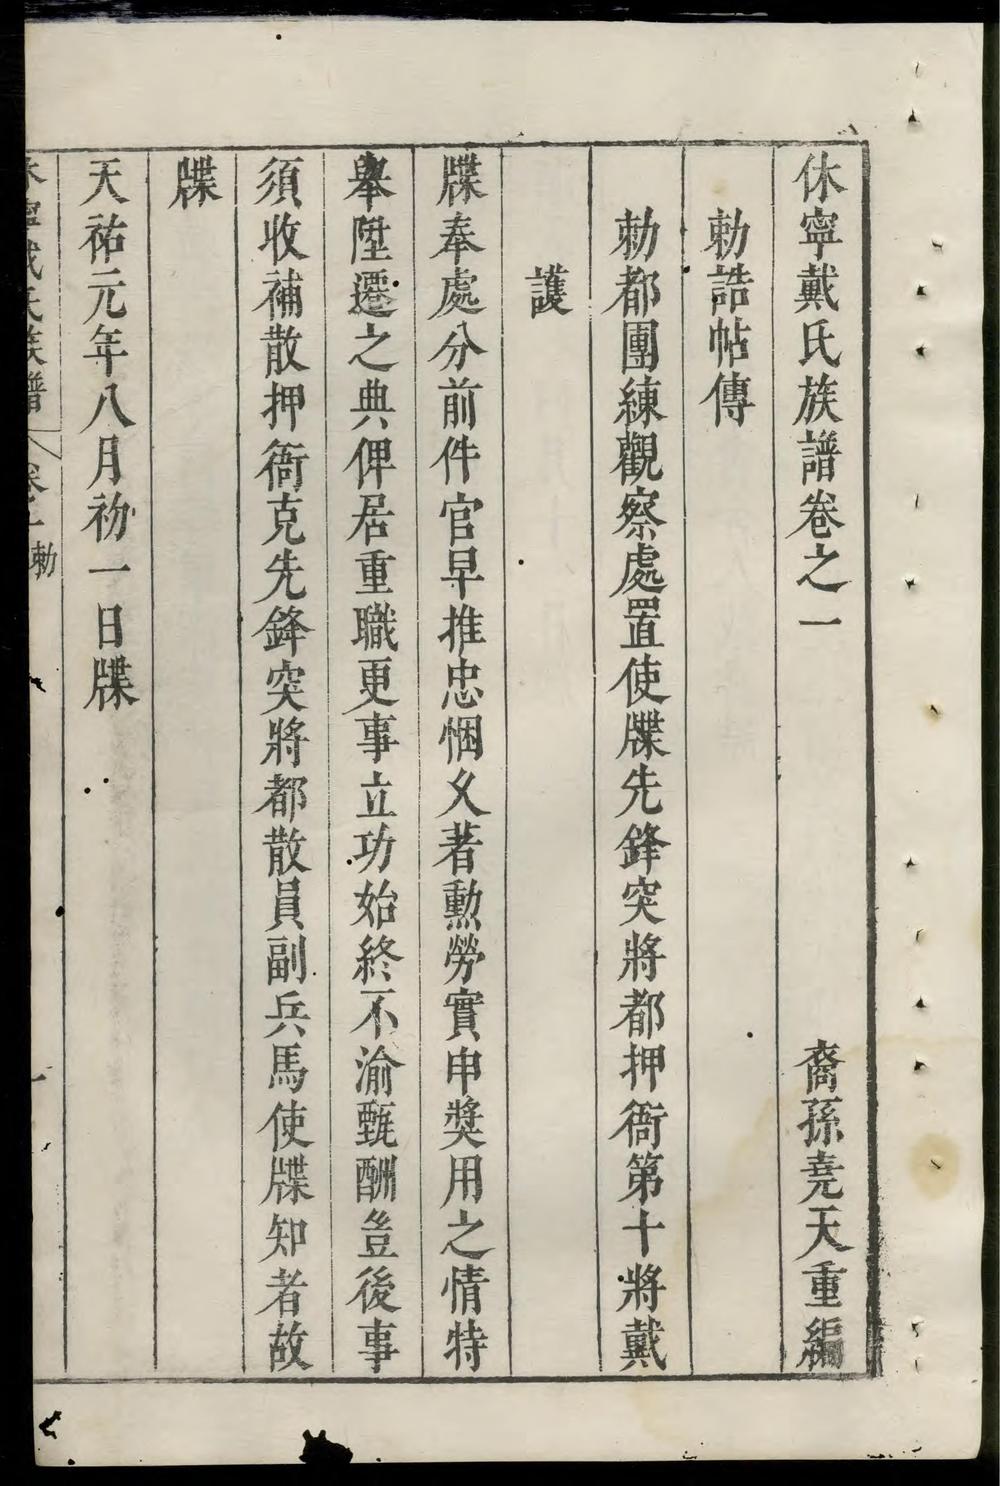 休寧戴氏族譜卷之一 裔孫堯天重編
勅誥帖傳
勅都團練觀察處置使牒先鋒突將都押衙第十將戴
護
牒奉處分前件官早推忠悃久著勳勞實申奬用之情特
舉陞遷之典俾居重職更事立功始終不渝甄酬豈後事
須收補散押衙克先鋒突將都散員副兵馬使牒知者故
牒
天祐元年八月初一日牒
休寧戴氏族譜 卷之一 勅 一